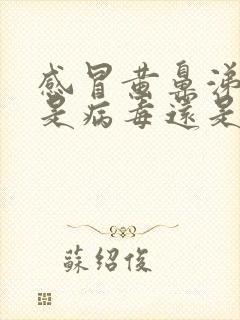 感冒黄鼻涕
是病毒還是
蘇紹俊